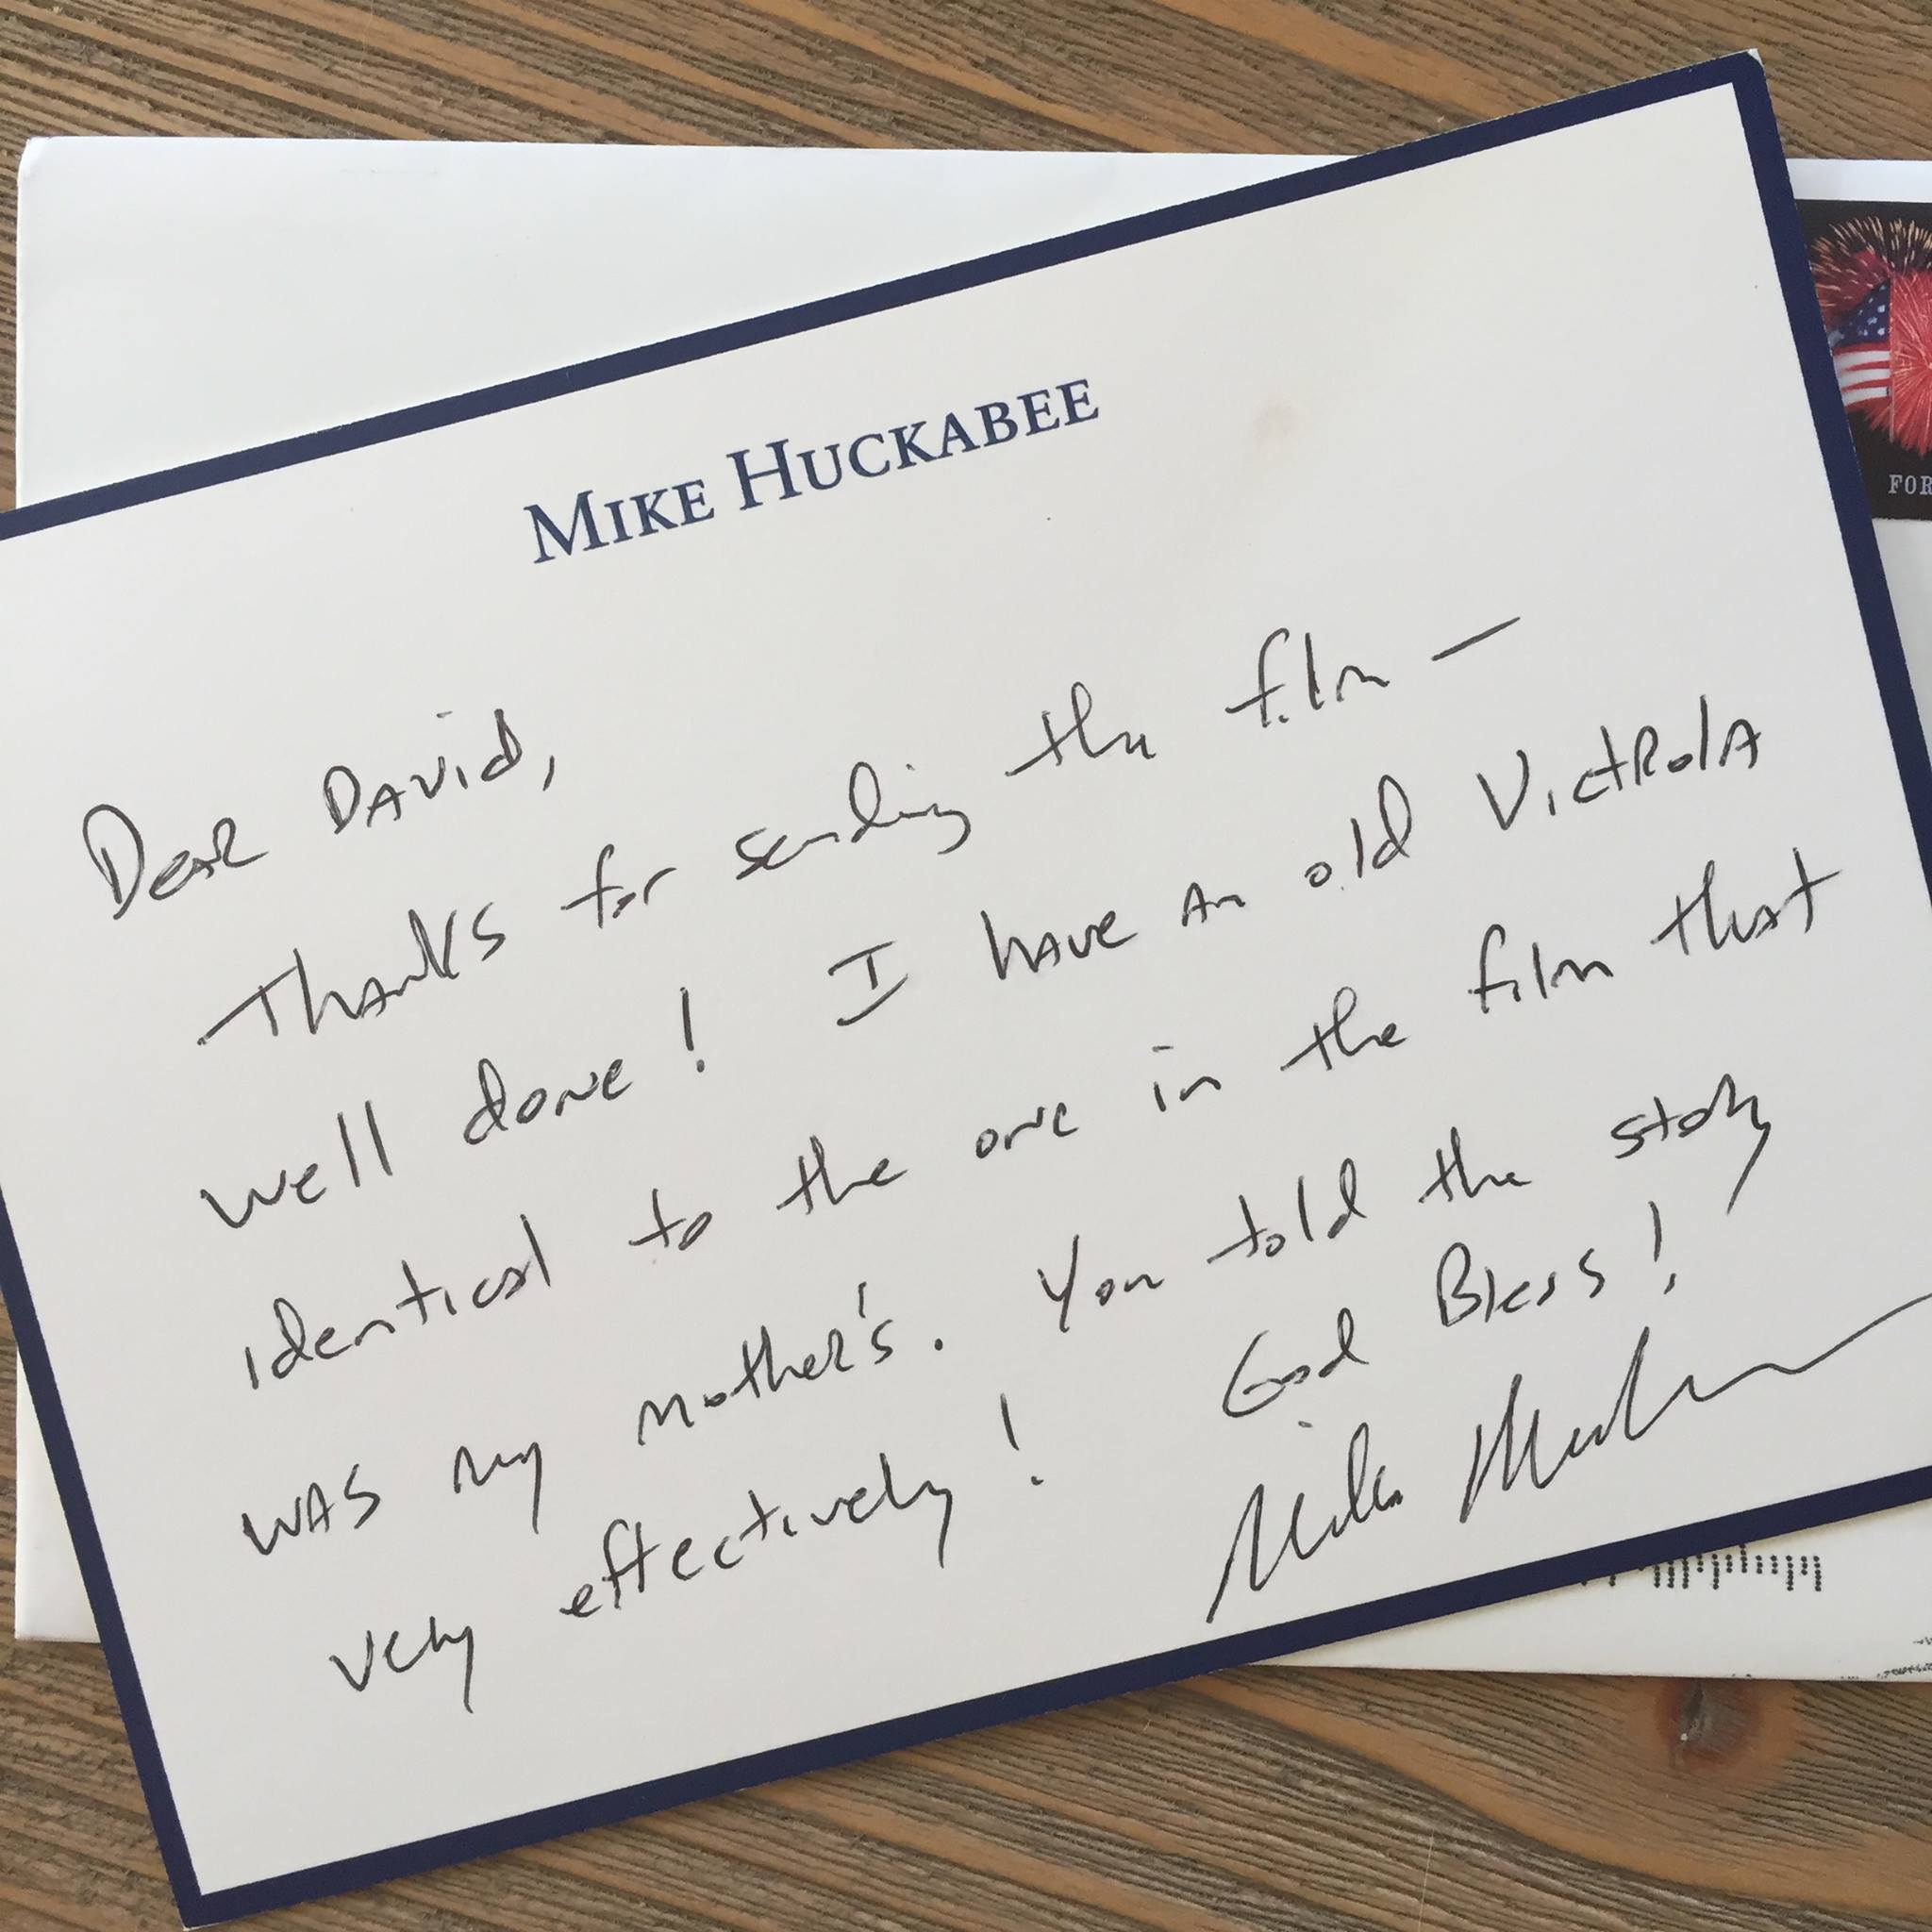 MIKE HUCKABEE
Dear David,
Thanks for sending the film —
well done! I have an old Victrola
identical to the one in the film that
was my mother's. You told the story
very effectively! God Bless!
Mike Huckabee
FOR